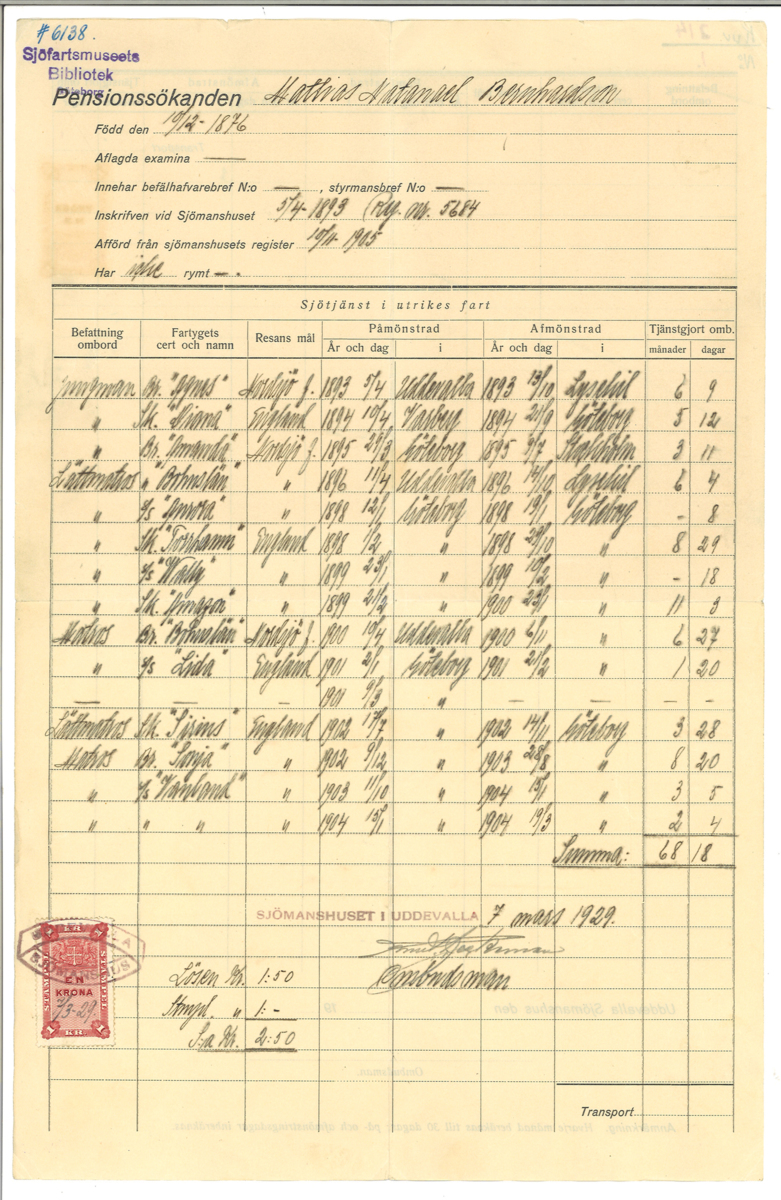 #6138.
Sjöfartsmuseets
Bibliotek
Göteborg
Pensionssökanden Mathias Natanael Bernhardson
Född den 10/12-1876
Aflagda examina —
Innehar befälhafvarebref N:o — , styrmansbref N:o —
Inskrifven vid Sjömanshuset 5/4-1893 Reg. nr. 5684
Afförd från sjömanshusets register 10/4-1905
Har icke rymt — .
Sjötjänst i utrikes fart
Befattning ombord Fartygets cert och namn Resans mål Påmönstrad Afmönstrad Tjänstgjort omb.
År och dag i År och dag i månader dagar
Jungman Br. "Agnes" Nordsjö f. 1893 5/4 Uddevalla 1893 13/10 Lysekil 6 9
" Sk. "Diana" England 1894 10/4 Varberg 1894 21/9 Göteborg 5 12
" Br. "Amanda" Nordsjö f. 1895 29/3 Göteborg 1895 9/7 Stockholm 3 11
Lättmatros " "Bohuslän" " 1896 11/4 Uddevalla 1896 14/10 Lysekil 6 4
" s/s "Aurora" " 1898 12/1 Göteborg 1898 19/1 Göteborg - 8
" Sk. England 1898 1/2 " 1898 29/10 " 8 29
" s/s "Wally" " 1899 23/1 " 1899 10/2 " - 18
" Sk. "Amazon" " 1899 21/2 " 1900 23/1 " 11 3
Matros Br. "Bohuslän" Nordsjö f. 1900 10/4 Uddevalla 1900 6/11 " 6 27
" s/s "Lida" England 1901 2/1 Göteborg 1901 21/2 " 1 20
— — — 1901 9/3 " — — — —
Lättmatros Sk. "Sirius" England 1902 17/7 " 1902 14/11 Göteborg 3 28
Matros Br. "Sonja" " 1902 9/12 " 1903 28/8 " 8 20
" s/s " 1903 11/10 " 1904 15/1 " 3 5
" " " " 1904 15/1 " 1904 19/3 " 2 4
Summa: 68 18
SJÖMANSHUSET I UDDEVALLA 7 mars 1929.
Ombudsman
UDDEVALLA
SJÖMANSHUS
EN
KRONA
7/3-29.
1 KR 1
Lösen Kr. 1:50
Stmpl. " 1:-
S:a Kr. 2:50
Transport